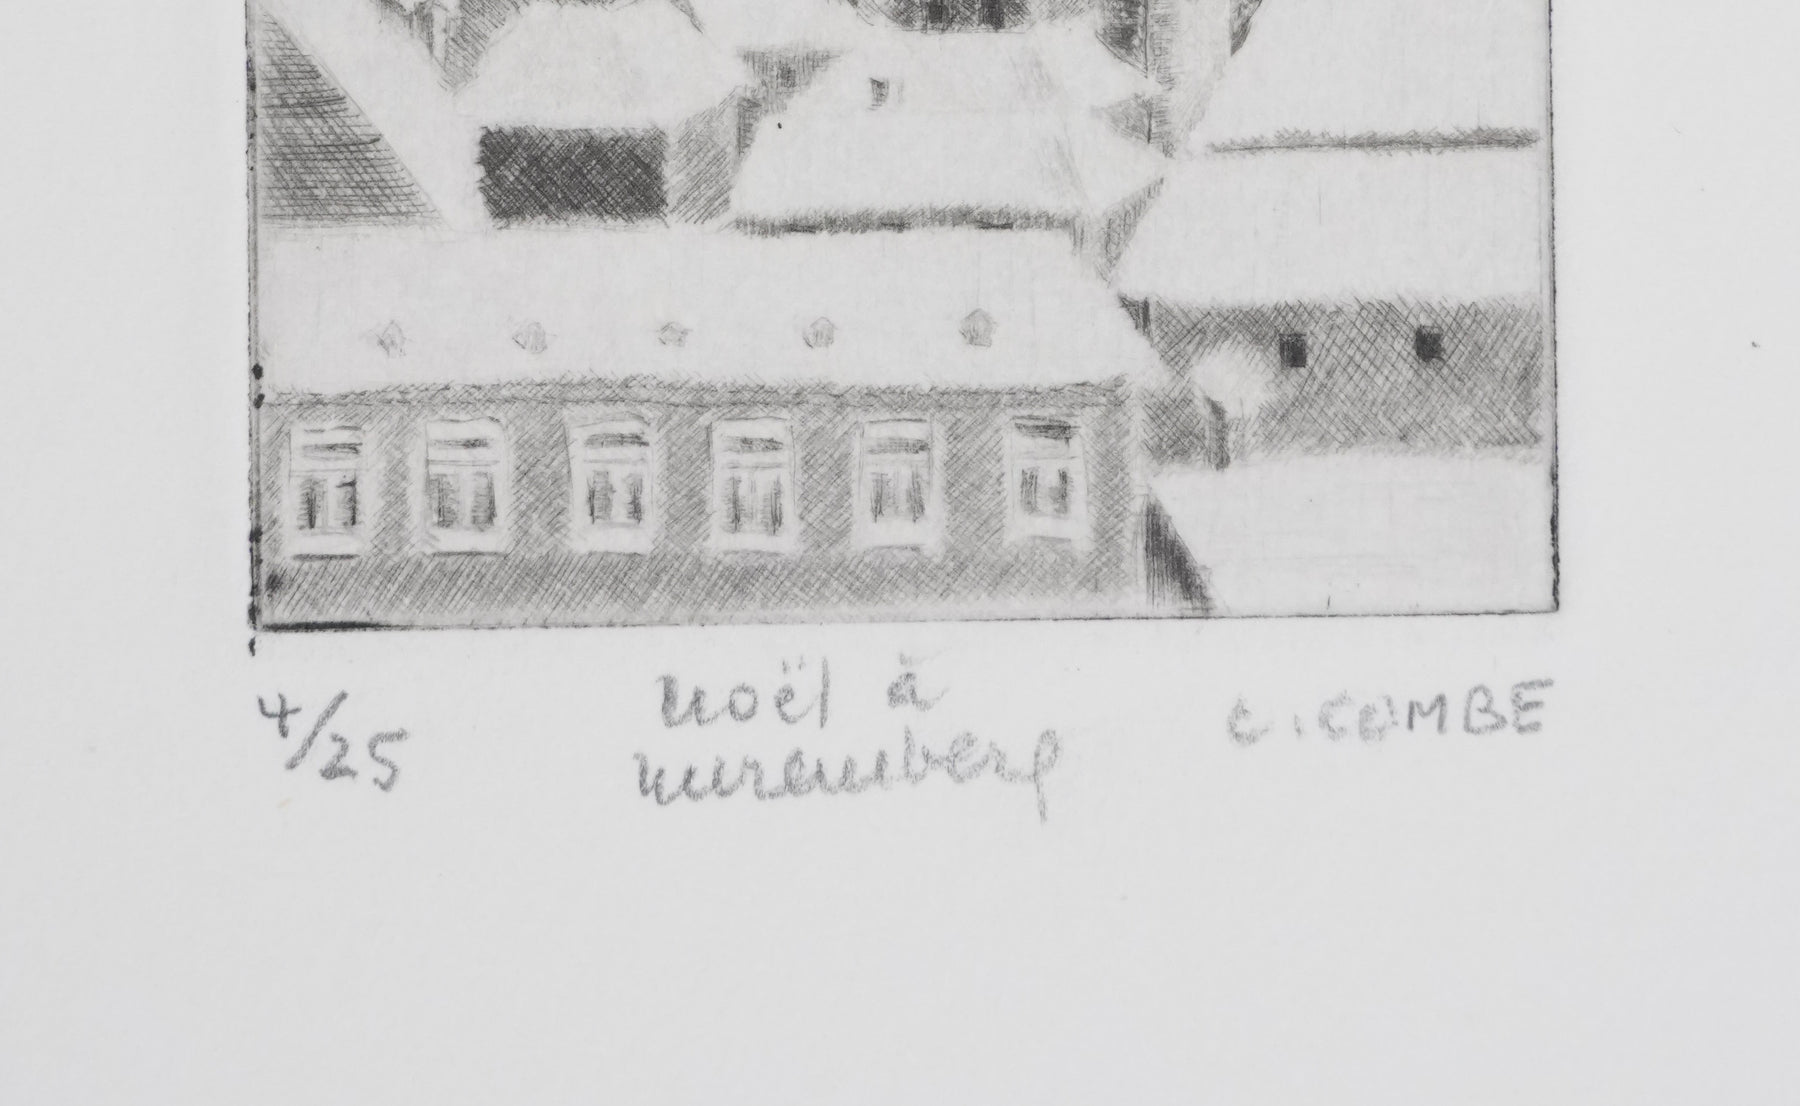 4/25
noël à
nuremberg
C. COMBE